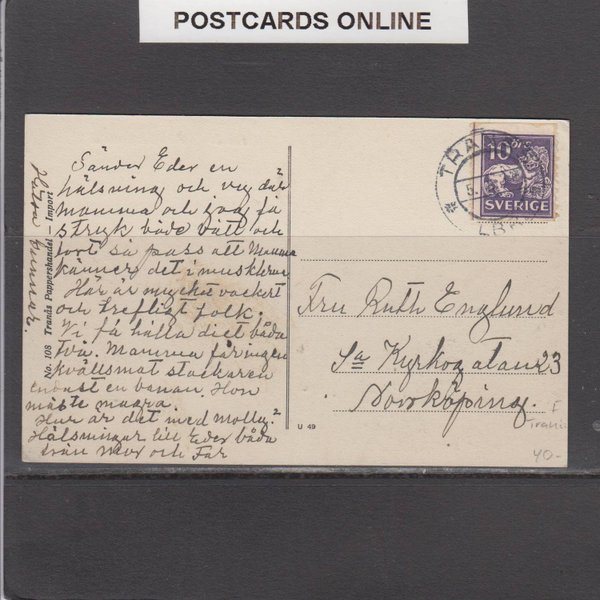 POSTCARDS ONLINE
Sänder Eder en
hälsning och
mamma och jag få
stryk både vått och
tort så pass att Mamma
känner det i musklerna
Här är mycket vackert
och trefligt folk.
Vi få hålla diet båda
två. Mamma får ingen
kvällsmat stackaren
enbart en banan. Hon
måste magra.
Hur är det med Molly?
Hälsningar till Eder båda
från Mor och Far
Hälsa Gunnar.
No. 108 Tranås Pappershandel - Import
U 49
TRA
10 ÖRE
SVERIGE
5.
Fru Ruth Englund
Sa Kyrkogatan 23
Norrköping.
I
40-